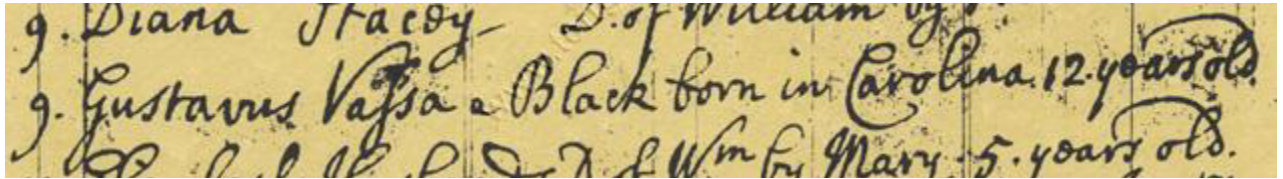 9. Diana Stacey D. of William by
9. Gustavus Vassa a Black born in Carolina. 12. years old.
D. of Wm by Mary. 5. years old.